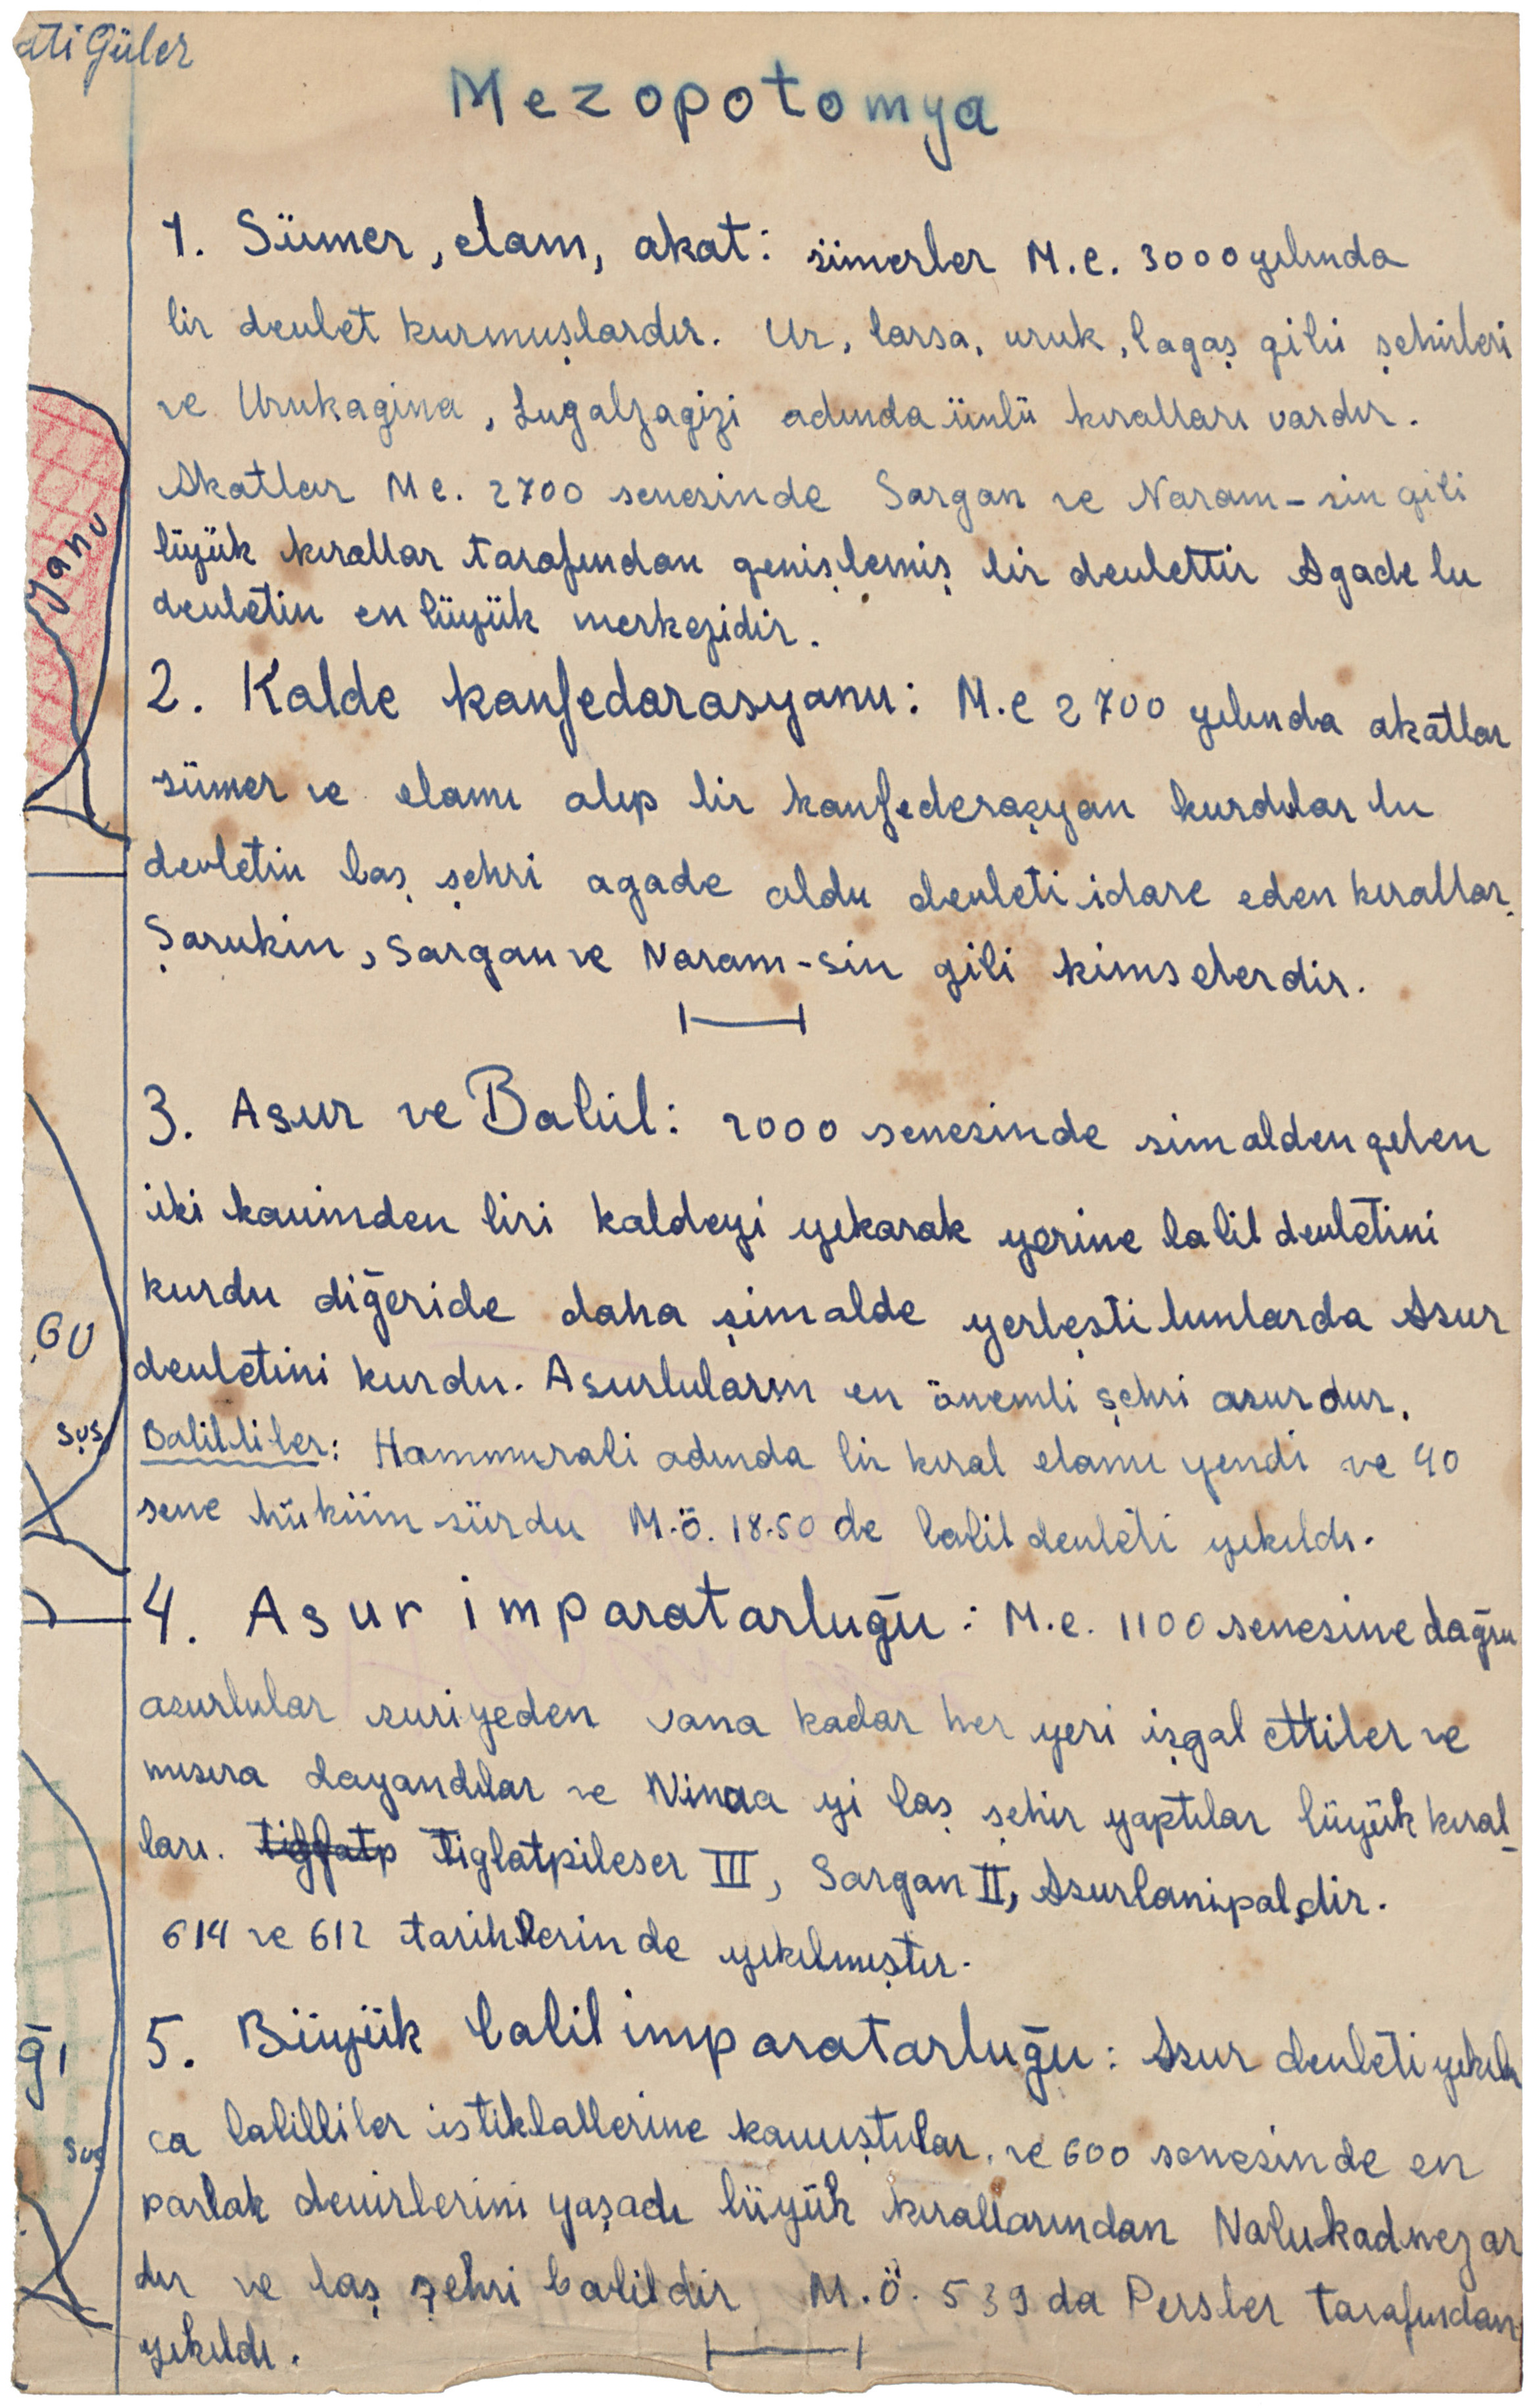 ati Güler
Mezopotomya
1. Sümer, elam, akat: sümerler M.e. 3000 yılında
bir devlet kurmuşlardır. Ur, larsa, uruk, lagaş gibi şehirleri
ve Urukagina, Lugalzagizi adında ünlü kıralları vardır.
Akatlar M e. 2700 senesinde Sargon ve Naram-sin gibi
büyük kırallar tarafından genişlemiş bir devlettir Agade bu
devletin en büyük merkezidir.
2. Kalde konfedarasyonu: M.e 2700 yılında akatlar
sümer ve elamı alıp bir konfederaşyon kurdular bu
devletin baş şehri agade oldu devleti idare eden kırallar.
Şarukin, Sargon ve Naram-sin gibi kimselerdir.
3. Asur ve Babil: 2000 senesinde simalden gelen
iki kavimden biri kaldeyi yıkarak yerine babil devletini
kurdu diğeride daha şimalde yerleşti bunlarda Asur
devletini kurdu. Asurluların en önemli şehri asurdur.
Babilliler: Hammurabi adında bir kıral elamı yendi ve 40
sene hüküm sürdü M.ö. 18.50 de babil devleti yıkıldı.
4. Asur imparatorluğu: M.e. 1100 senesine doğru
asurlular suriyeden vana kadar her yeri işgal ettiler ve
mısıra dayandılar ve Ninoa yi baş şehir yaptılar büyük kıral-
ları. Tiglatp Tiglatpileser III, Sargon II, Asurbanipal,dir.
614 ve 612 tarihlerinde yıkılmıştır.
5. Büyük babil imparatorluğu: Asur devleti yıkılın
ca babilliler istiklallerine kavuştular. ve 600 senesinde en
parlak devirlerini yaşadı büyük kırallarından Nabukadnezar
dır ve baş şehri babildir M.ö. 539 da Persler tarafından
yıkıldı.
yanu
GU
sus
ğı
sus